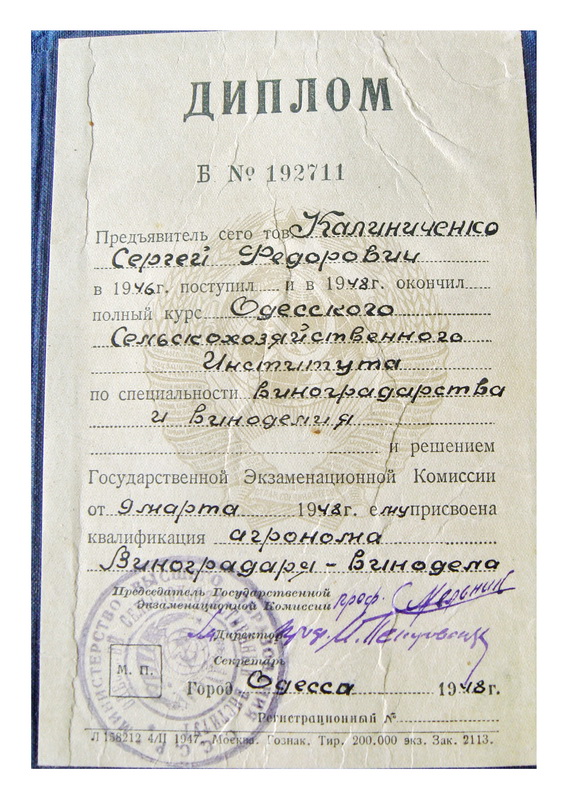 ДИПЛОМ
Б № 192711
Предъявитель сего тов. Калиниченко
Сергей Федорович
в 1946 г. поступил и в 1948 г. окончил
полный курс Одесского
Сельскохозяйственного
Института
по специальности виноградарства
и виноделия
и решением
Государственной Экзаменационной Комиссии
от 9 марта 1948 г. ему присвоена
квалификация агронома
Виноградаря - винодела
Председатель Государственной
Экзаменационной Комиссии проф. Мельник
Директор проф.
Секретарь
М. П.
Город Одесса 1948 г.
Регистрационный №
Л 158212 4/II 1947. Москва. Гознак. Тир. 200.000 экз. Зак. 2113.
МИНИСТЕРСТВО ВЫСШЕГО